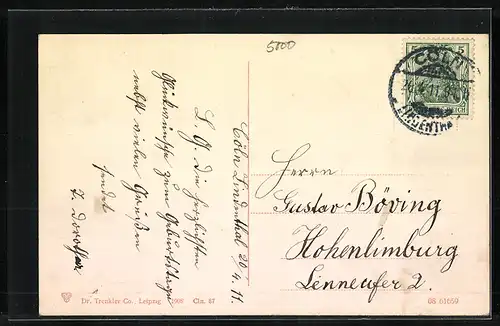 5000
5
CÖLN
LINDENTHAL
Cöln Lindenthal 20/4. 11.
L. G. den herzlichsten
Glückwunsch zum Geburtstage
nebst vielen Grüßen
sendet
T. Dorothea
Herrn
Gustav Böving
Hohenlimburg
Lenneufer 2.
Dr. Trenkler Co., Leipzig 1908 Cln. 67
08 61659